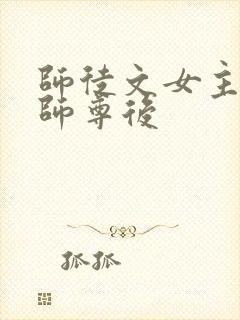 師徒文女主
師尊後
孤孤